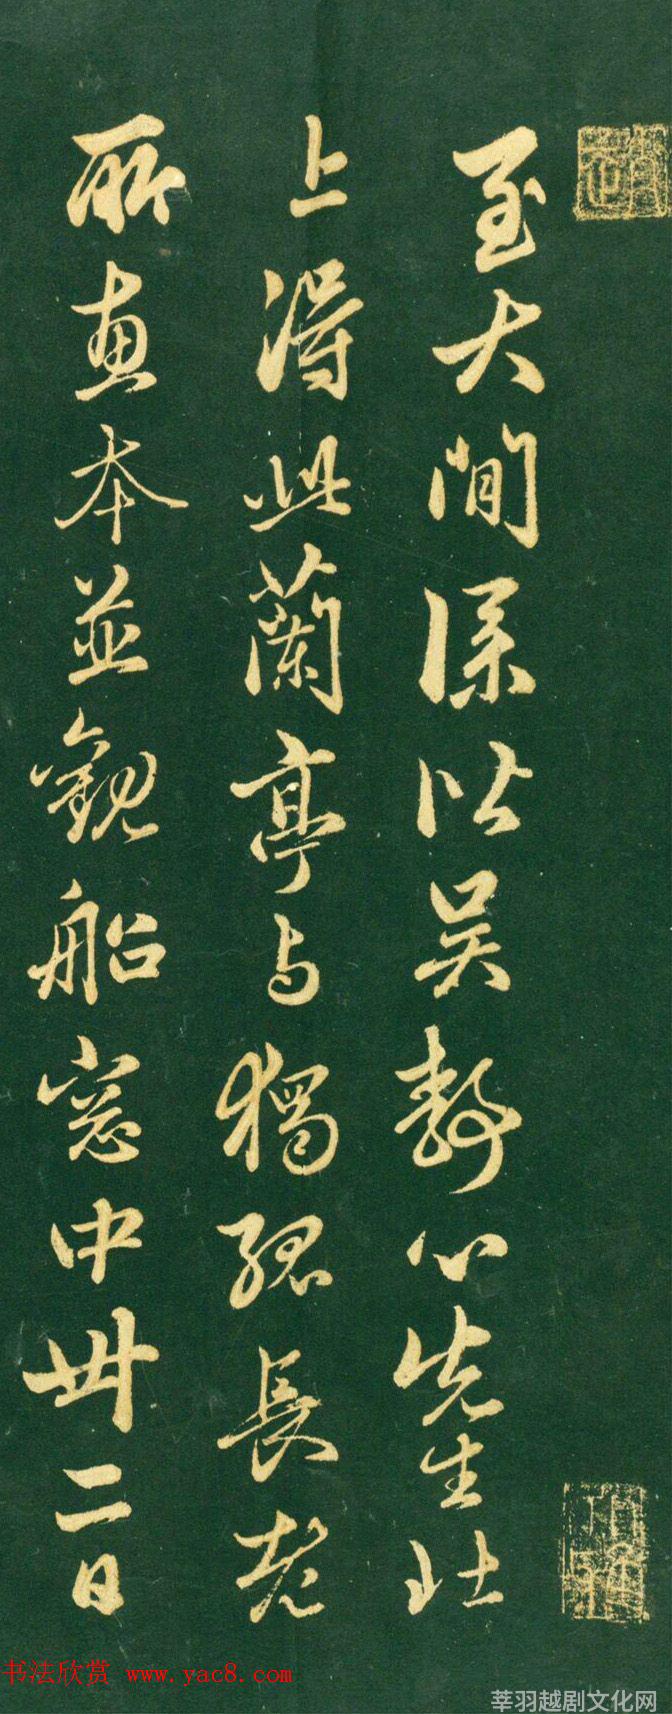 至大間以吴静心先生北
上得此蘭亭与獨孤長老
所惠本並觀船窓中卅二日
书法欣赏 www.yac8.com
莘羽越剧文化网